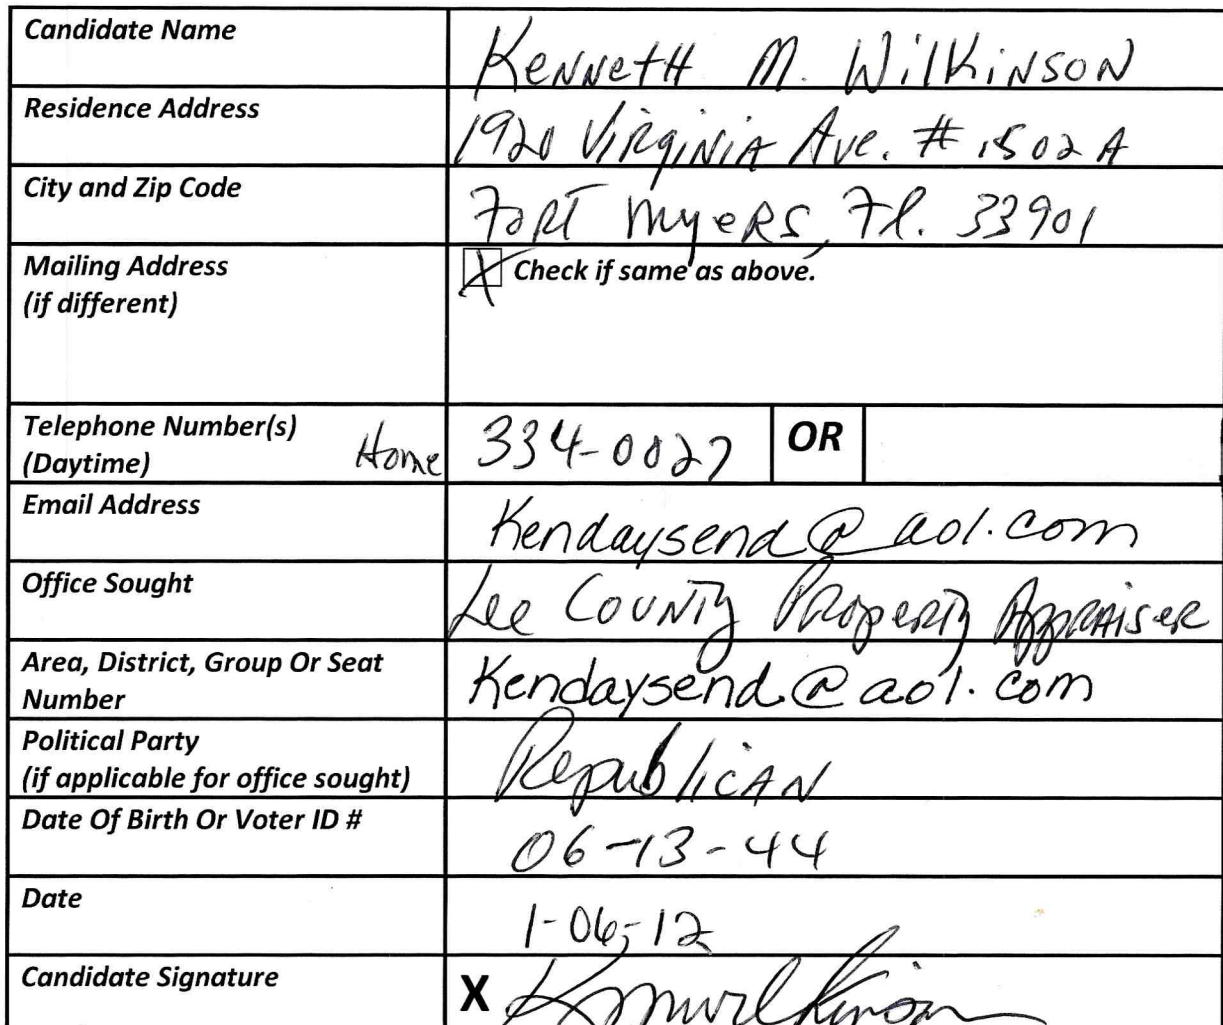 Candidate Name
Kenneth M. Wilkinson
Residence Address
1920 Virginia Ave. # 1502 A
City and Zip Code
Fort Myers, Fl. 33901
Mailing Address
(if different)
X Check if same as above.
Telephone Number(s)
(Daytime) Home 334-0027 OR
Email Address
Kendaysend@aol.com
Office Sought
Lee County Property Appraiser
Area, District, Group Or Seat
Number
Kendaysend@aol.com
Political Party
(if applicable for office sought)
Republican
Date Of Birth Or Voter ID #
06-13-44
Date
1-06-12
Candidate Signature
X KMWilkinson